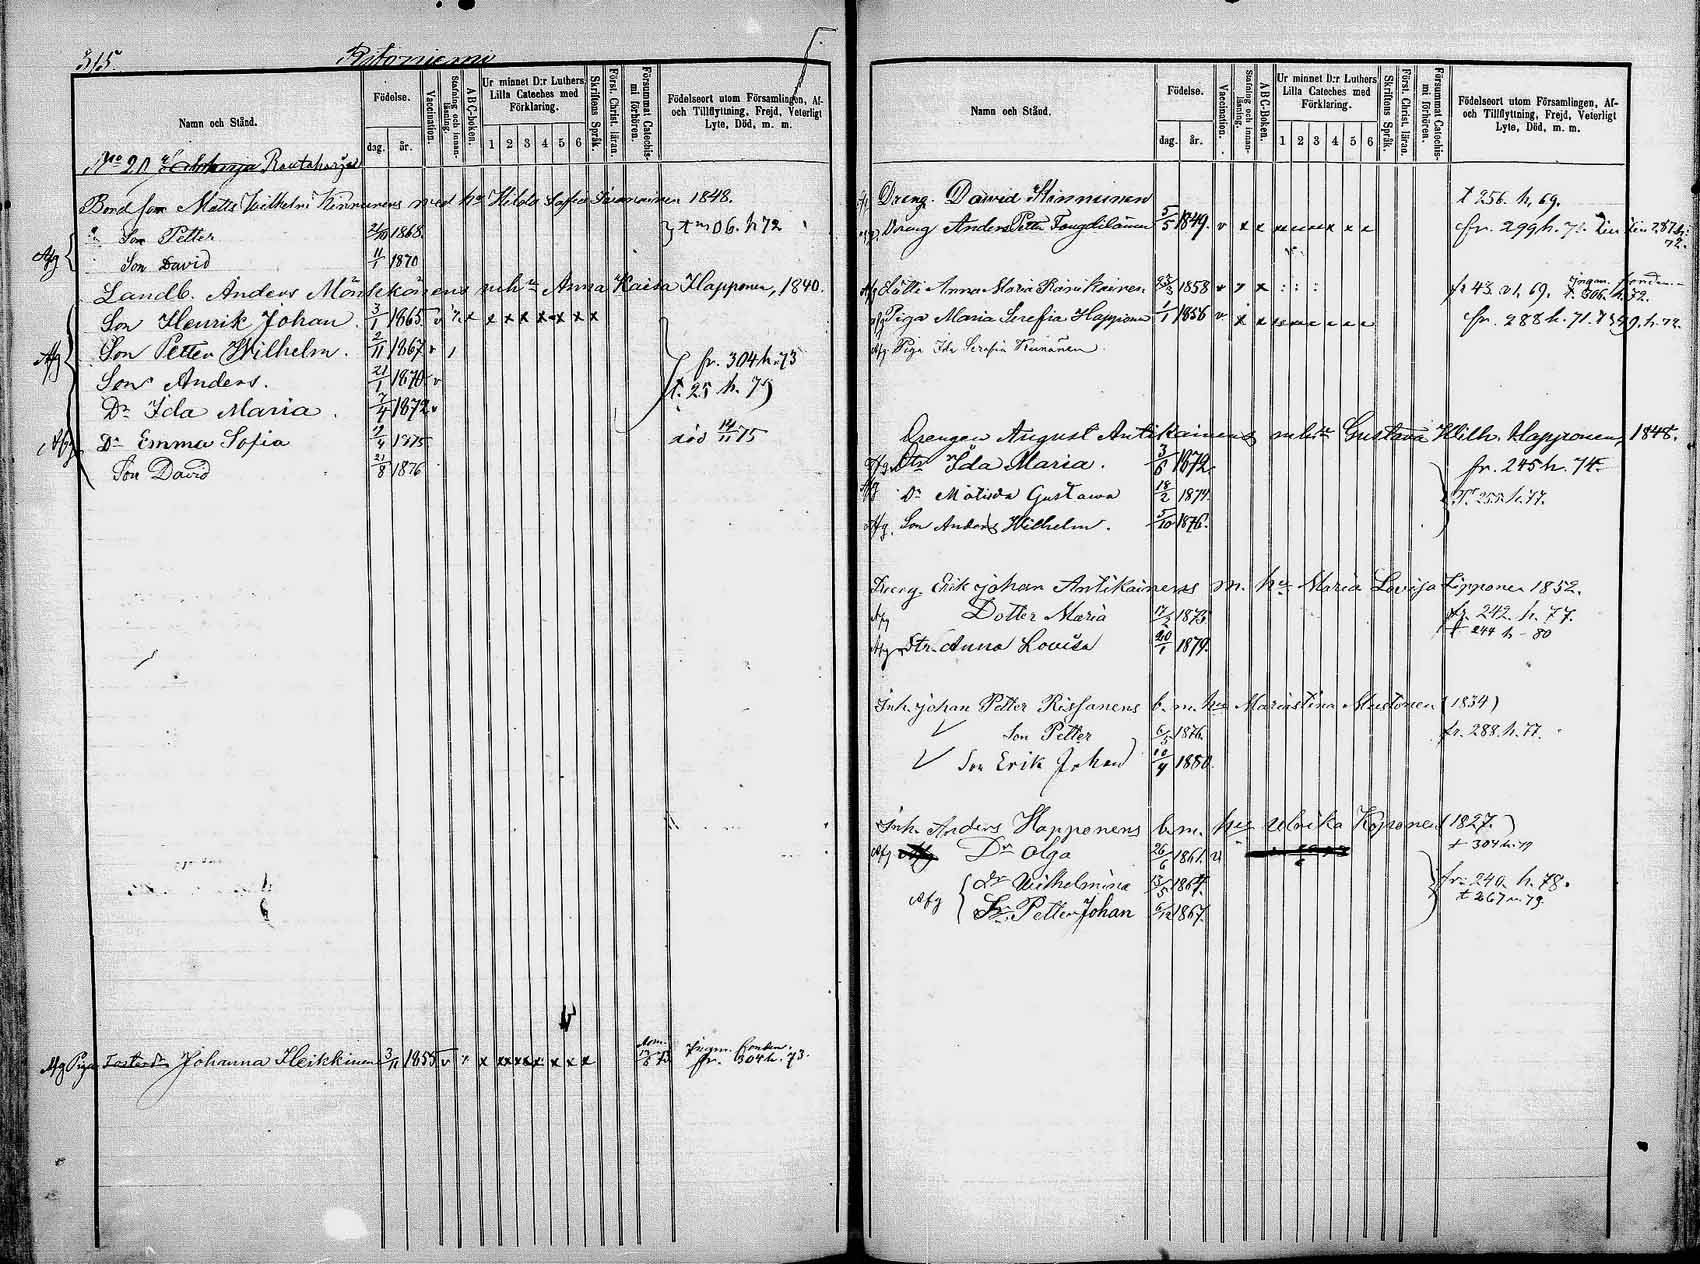 315.
Namn och Stånd.
Födelse.
dag. år.
Vaccination.
Stafning och innan-läsning.
ABC-boken.
Ur minnet D:r Luthers Lilla Cateches med Förklaring.
1 2 3 4 5 6
Skriftens Språk.
Först. Christ. läran.
Försummat Catechis-mi förhören.
Födelseort utom Församlingen, Af- och Tillflyttning, Frejd, Veterligt Lyte, Död, m. m.
Rautaharju
Matts Wilhelm Kinnunens med hu Hilda Sofia 1848.
Son Petter 1868. 06. h 72
Afg Son David 1/1 1870
Landb. Anders Mönkkönens m hu Anna Kaisa Happonen, 1840.
Son Henrik Johan. 3/1 1865. v x x x x x x x x x
Afg Son Petter Wilhelm. 2/11 1867 v fr. 304 h. 73
Son Anders. 21/1 1870 v t. 25 h. 79
Dr Ida Maria. 7/4 1872 v
Afg Dr Emma Sofia 19/4 1875 död 14/11 75
Son David 21/8 1876
Afg Piga Johanna Heikkinen 3/11 1855 v x x x x x x x x fr. 304 h. 73.
Namn och Stånd.
Födelse.
dag. år.
Vaccination.
Stafning och innan-läsning.
ABC-boken.
Ur minnet D:r Luthers Lilla Cateches med Förklaring.
1 2 3 4 5 6
Skriftens Språk.
Först. Christ. läran.
Försummat Catechis-mi förhören.
Födelseort utom Församlingen, Af- och Tillflyttning, Frejd, Veterligt Lyte, Död, m. m.
Dreng. Dawid Kinnunen t 256. h. 69.
Dreng Anders Petter 5/5 1849. v x x x x x x x x fr. 299 h. 71.
Afg Anna Maria 1858 v x fr 43. 69. t. 306. h. 72.
Piga Maria Serefia Happonen 1/1 1856 v x x fr. 288 h. 71. t 349. h. 72.
Afg. Piga Ida Serafia
Drengen August Antikainens m hu Gustava Wilh. Happonen, 1848.
Dtr Ida Maria. 3/6 1872. fr. 245 h. 74
Afg Dr Matilda Gustawa 18/2 1874. T. 255 h. 77.
Afg. Son Anders Wilhelm. 5/10 1876.
Dreng. Erik Johan Antikainens m. hu Maria Lovisa Lipponen 1852.
Afg Dotter Maria 1875 fr. 242. h. 77.
t 244 h - 80
Afg Dtr. Anna Lovisa 20/1 1879.
Inh. Johan Petter Rissanens b. m. hu Maristina Mustonen (1834)
Son Petter 6/5 1876. fr. 288. h. 77.
Son Erik Johan 10/4 1880.
Inh. Anders Happonens b. m. hu Ulrika Koponen (1827.)
Afg Dr Olga 26/6 1861. v t 304 h. 79
Dr Wilhelmina 13/5 1864. fr. 240. h. 78.
Afg Sn. Petter Johan 6/12 1867. t 267 h. 79